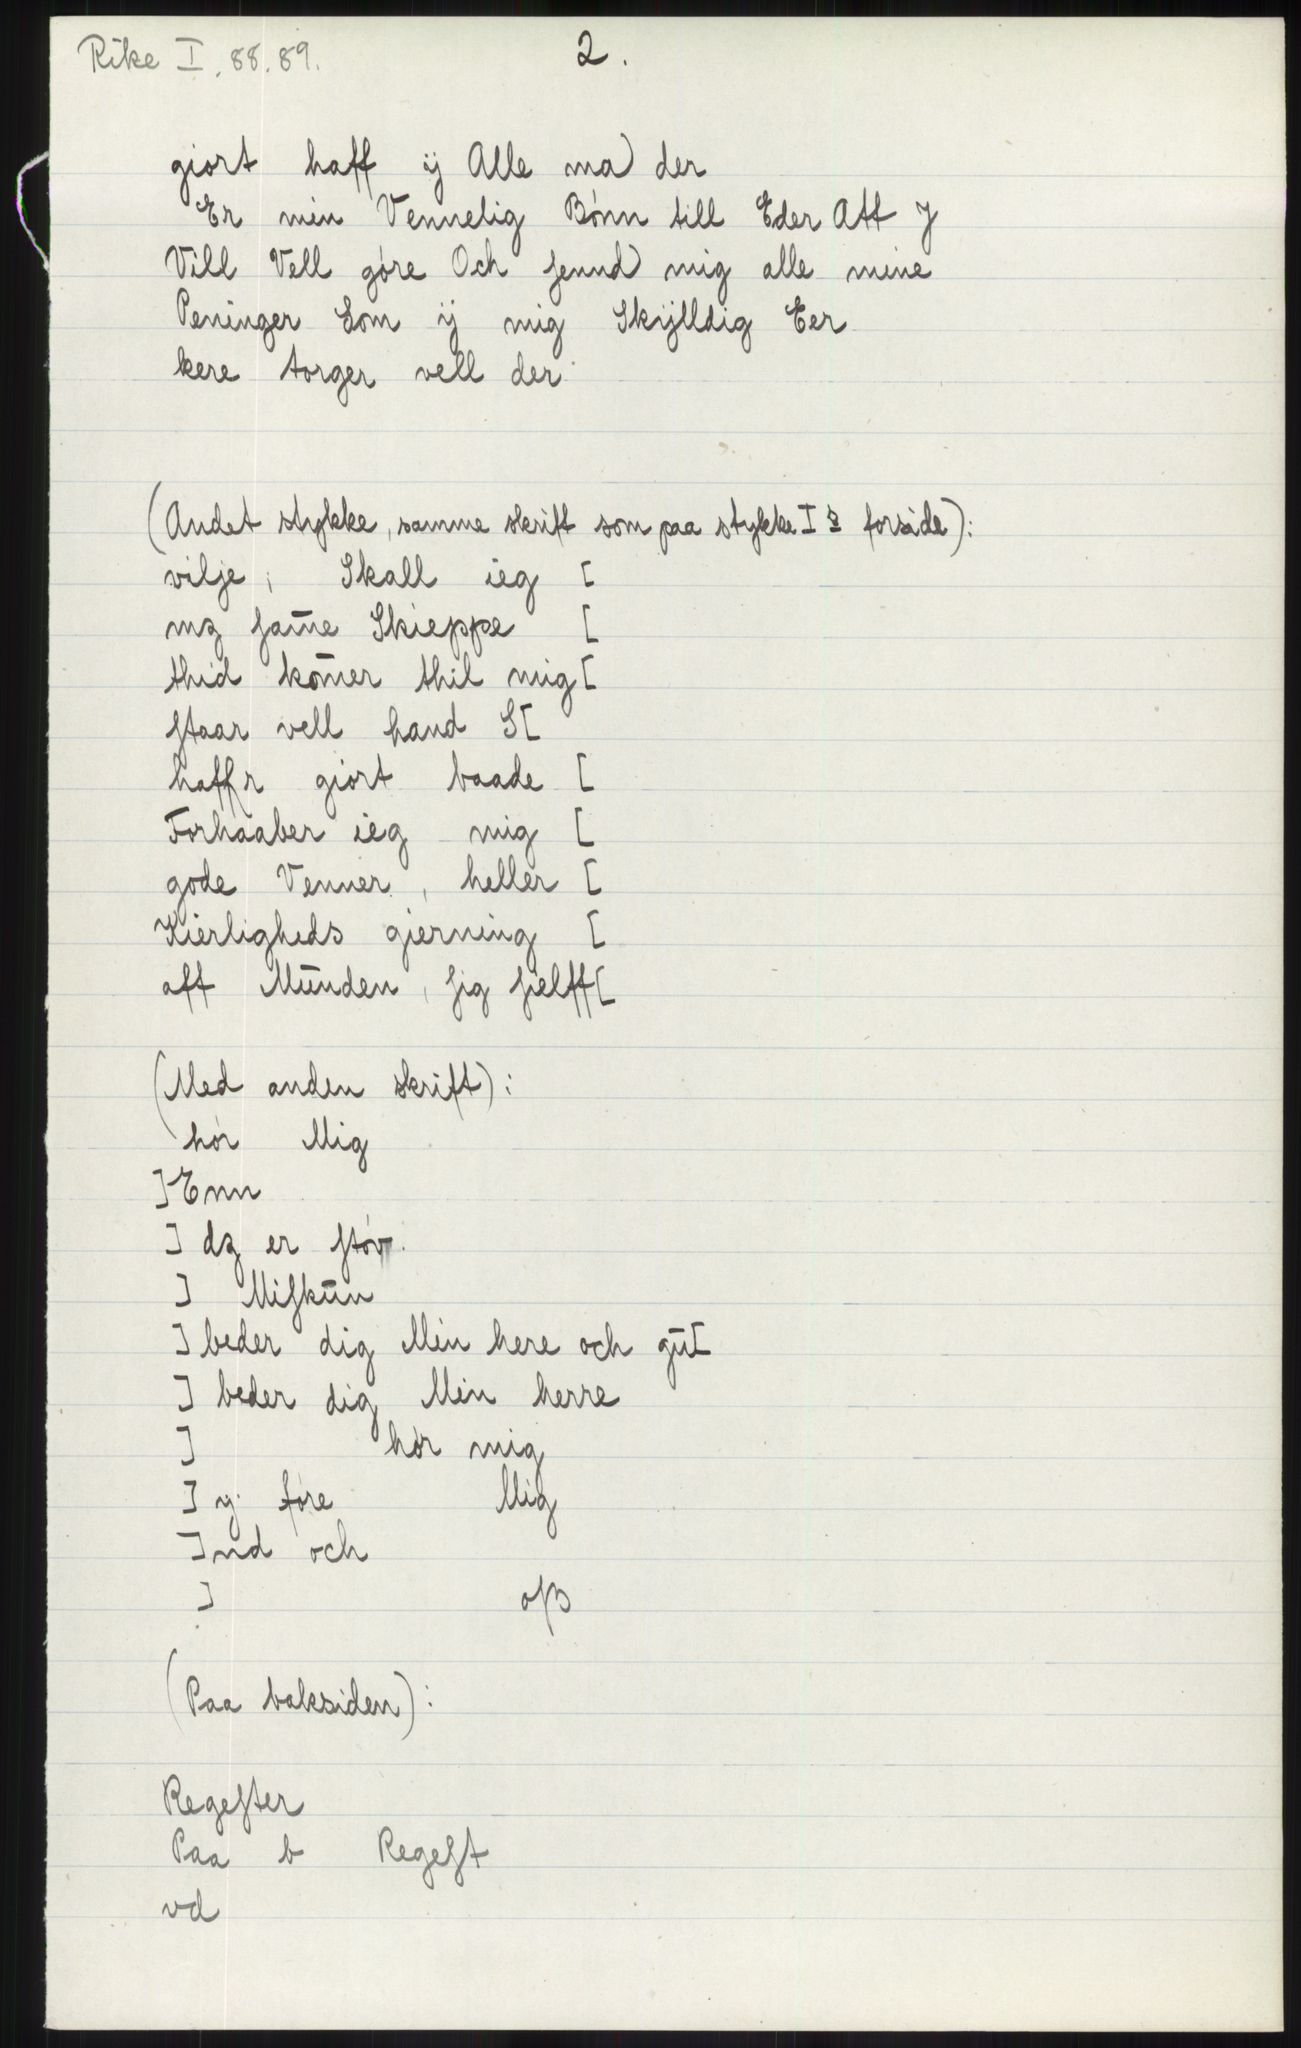 Rike I. 88. 89.
2.
giort haff ÿ Alle ma der
Er min Vennelig Bónn till Eder Att J
Vill Vell góre Och ſennd mig alle mine
Peninger Som ÿ mig Skÿlldig Eer
kere torger vell der
(Andet stykke, samme skrift som paa stykke I s forside):
vilje, Skall ieg [
mz ſam̄e Skieppe [
thid kom̄er thil mig [
ſtaar vell hand S[
haffr giort baade [
Forhaaber ieg mig [
gode Venner, heller [
Kierligheds gierning [
aff Mūnden, ſig ſielff[
(Med anden skrift):
hór Mig
]Enn
] dz er ſtóv
] Miſkūn
] beder dig Min here och gū[
] beder dig Min herre
] hór mig
] y fóre Mig
]nd och
] oſs
(Paa baksiden):
Regeſter
Paa b Regeſt
vd